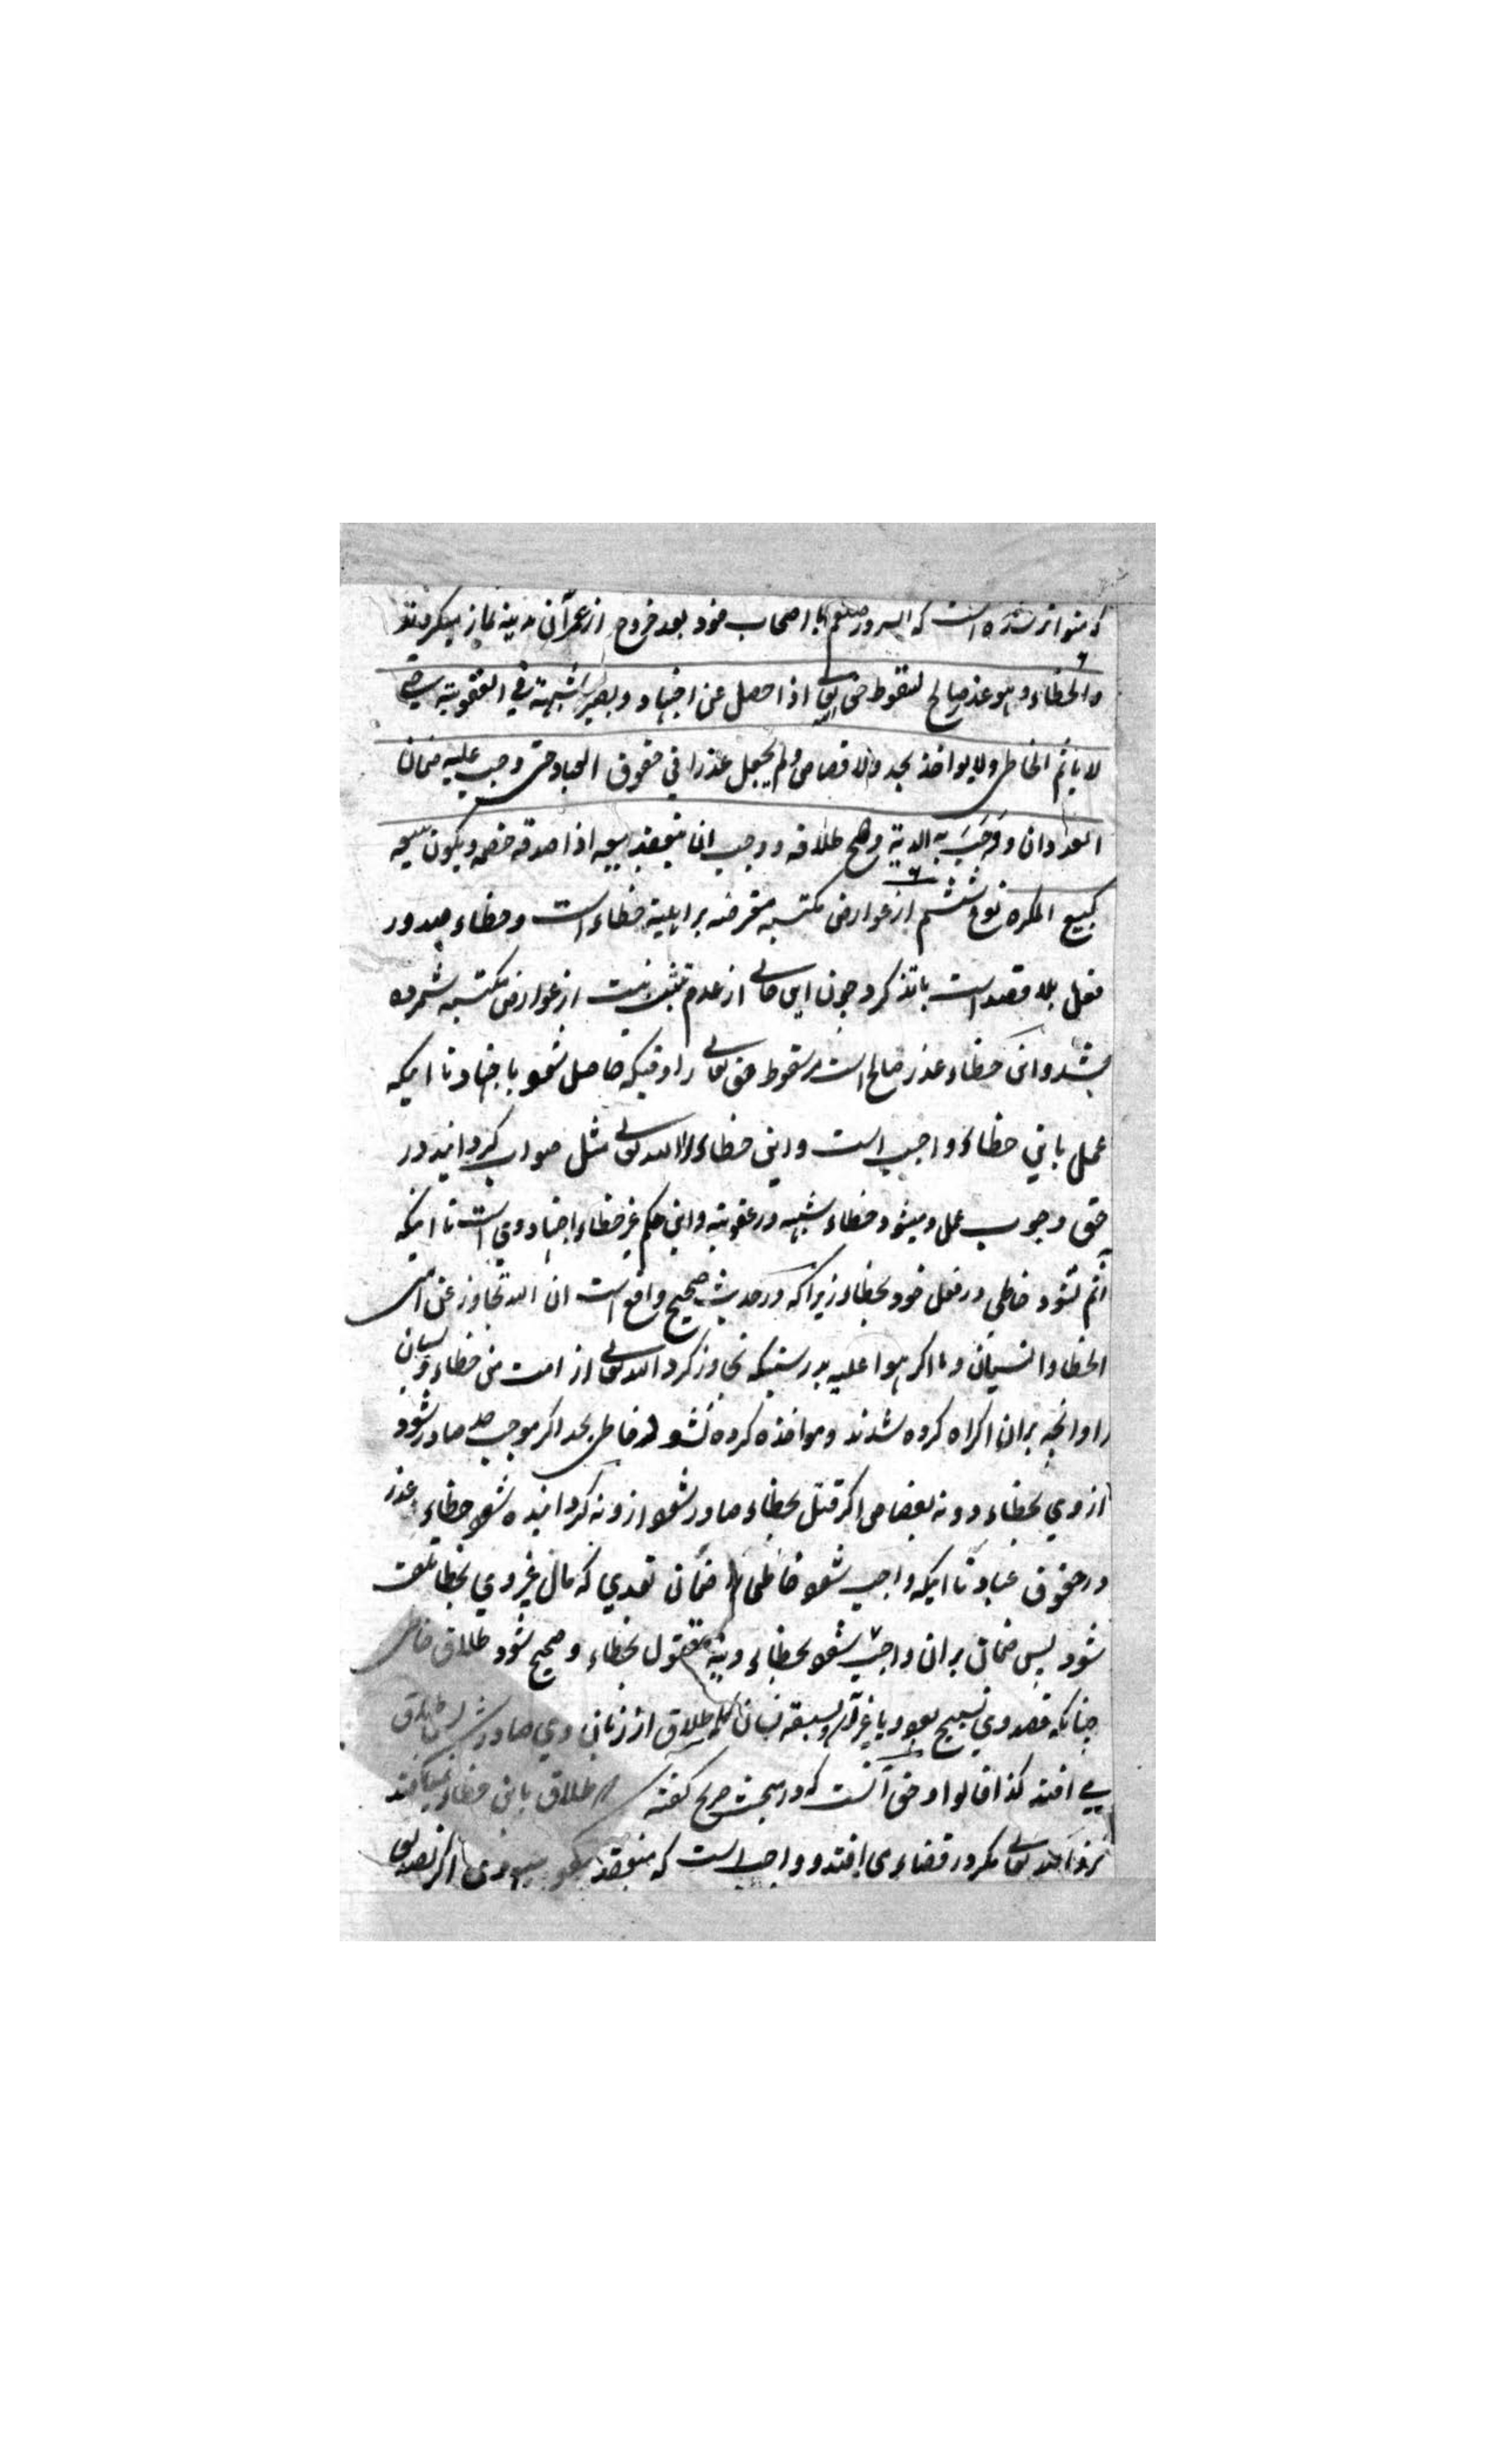 که متواتر شده است که آنسرور صلعم با اصحاب خود بعد خروج از عمران مدینه نماز میکردند
والخطاء وهو عذر صالح لسقوط حق الله تعالی اذا حصل عن اجتهاد ویصیر شبهة فی العقوبة حتی
لا یأثم الخاطی ولا یواخذ بحد ولا قصاص ولم یجعل عذرا فی حقوق العباد حتی وجب علیه ضمان
العدوان ووجبت به الدیة وصح طلاقه ووجب ان ینعقد بیعه اذا صدقه خصمه ویکون بیعه
کبیع المکره نوع ششم از عوارض مکتسبه معترضه بر اهلیة خطاء است وخطاء صدور
فعل بلا قصد است با تذکر و چون این خالی از عدم تثبت نیست از عوارض مکتسبه شمرده
شد و این خطاء عذر صالح است مر سقوط حق تعالی را وقتیکه حاصل شود باجتهاد تا اینکه
عمل باین خطاء واجب است و این خطاء را الله تعالی مثل صواب گردانید در
حق وجوب عمل و میشود خطاء شبهه در عقوبة و این حکم غیر خطاء اجتهادی است تا اینکه
آثم نشود خاطی در فعل خود بخطاء زیرا که در حدیث صحیح واقع است ان الله تجاوز عن امتی
الخطاء والنسیان وما اکرهوا علیه بدرستیکه تجاوز کرد الله تعالی از امت من خطاء ونسیان
را وآنچه بران اکراه کرده شدند ومواخذه کرده نشود خاطی بحد اگر موجب حد صادر شود
از وی بخطاء و نه بقصاص اگر قتل بخطاء صادر شود ازو نه گردانیده شود خطاء عذر
در حقوق عباد تا اینکه واجب شود خاطی را ضمان تعدی که مال غیر وی بخطا تلف
شود پس ضمان بران واجب شود بخطاء ودیة مقتول بخطاء وصحیح شود طلاق خاطی
چنانکه قصد وی تسبیح بود یا غیر آن وبسبقه لسان کلمه طلاق از زبان وی صادر شد طلاق
می افتد کذا قالوا وحق آنست که در مبحث صریح گفته که طلاق باین خطاء نمی افتد
نزد الله تعالی مگر در قضاء می افتد وواجب است که منعقد شود بیع وی اگر تصدیق